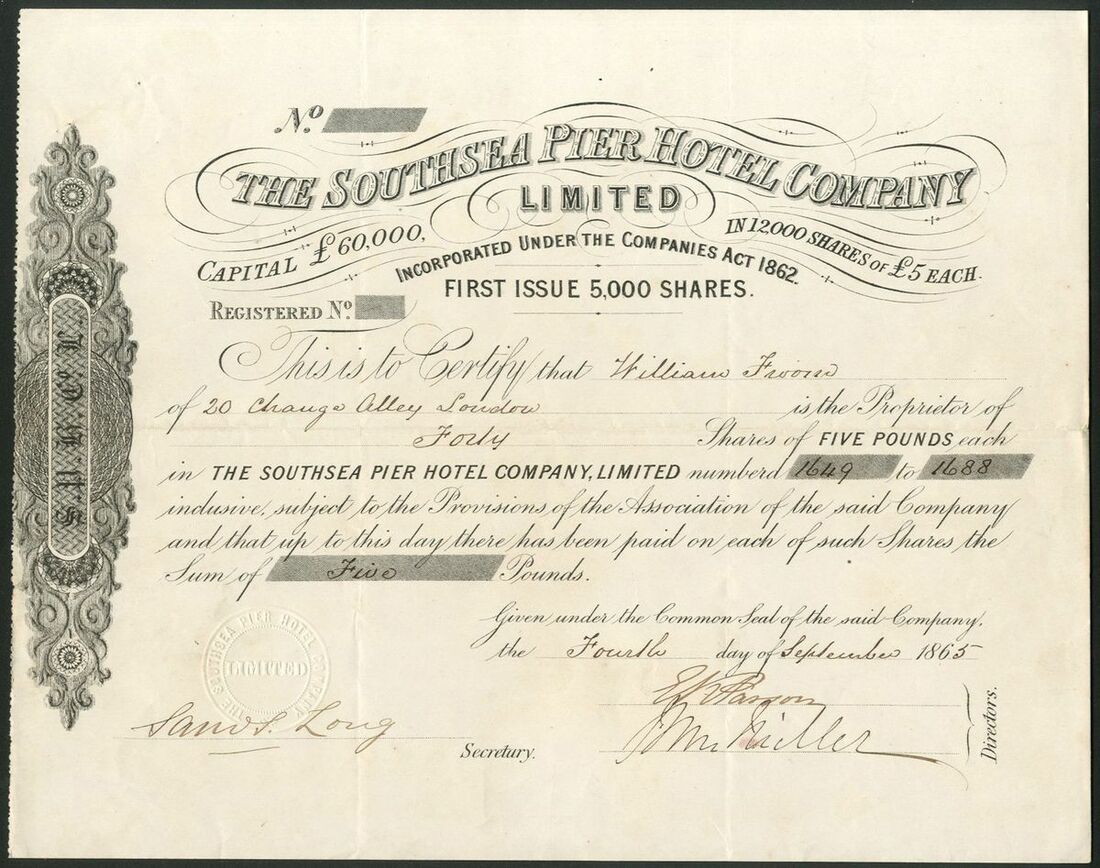 No.
THE SOUTHSEA PIER HOTEL COMPANY
LIMITED
CAPITAL £60,000, IN 12000 SHARES OF £5 EACH.
INCORPORATED UNDER THE COMPANIES ACT 1862.
FIRST ISSUE 5,000 SHARES.
REGISTERED No.
This is to Certify that William
of 20 Change Alley London is the Proprietor of
Forty Shares of FIVE POUNDS each
in THE SOUTHSEA PIER HOTEL COMPANY, LIMITED numberd 1649 to 1688
inclusive, subject to the Provisions of the Association of the said Company
and that up to this day there has been paid on each of such Shares the
Sum of Five Pounds.
Given under the Common Seal of the said Company,
the Fourth day of September 1865
THE SOUTHSEA PIER HOTEL COMPANY
LIMITED
Long
Secretary.
Directors.